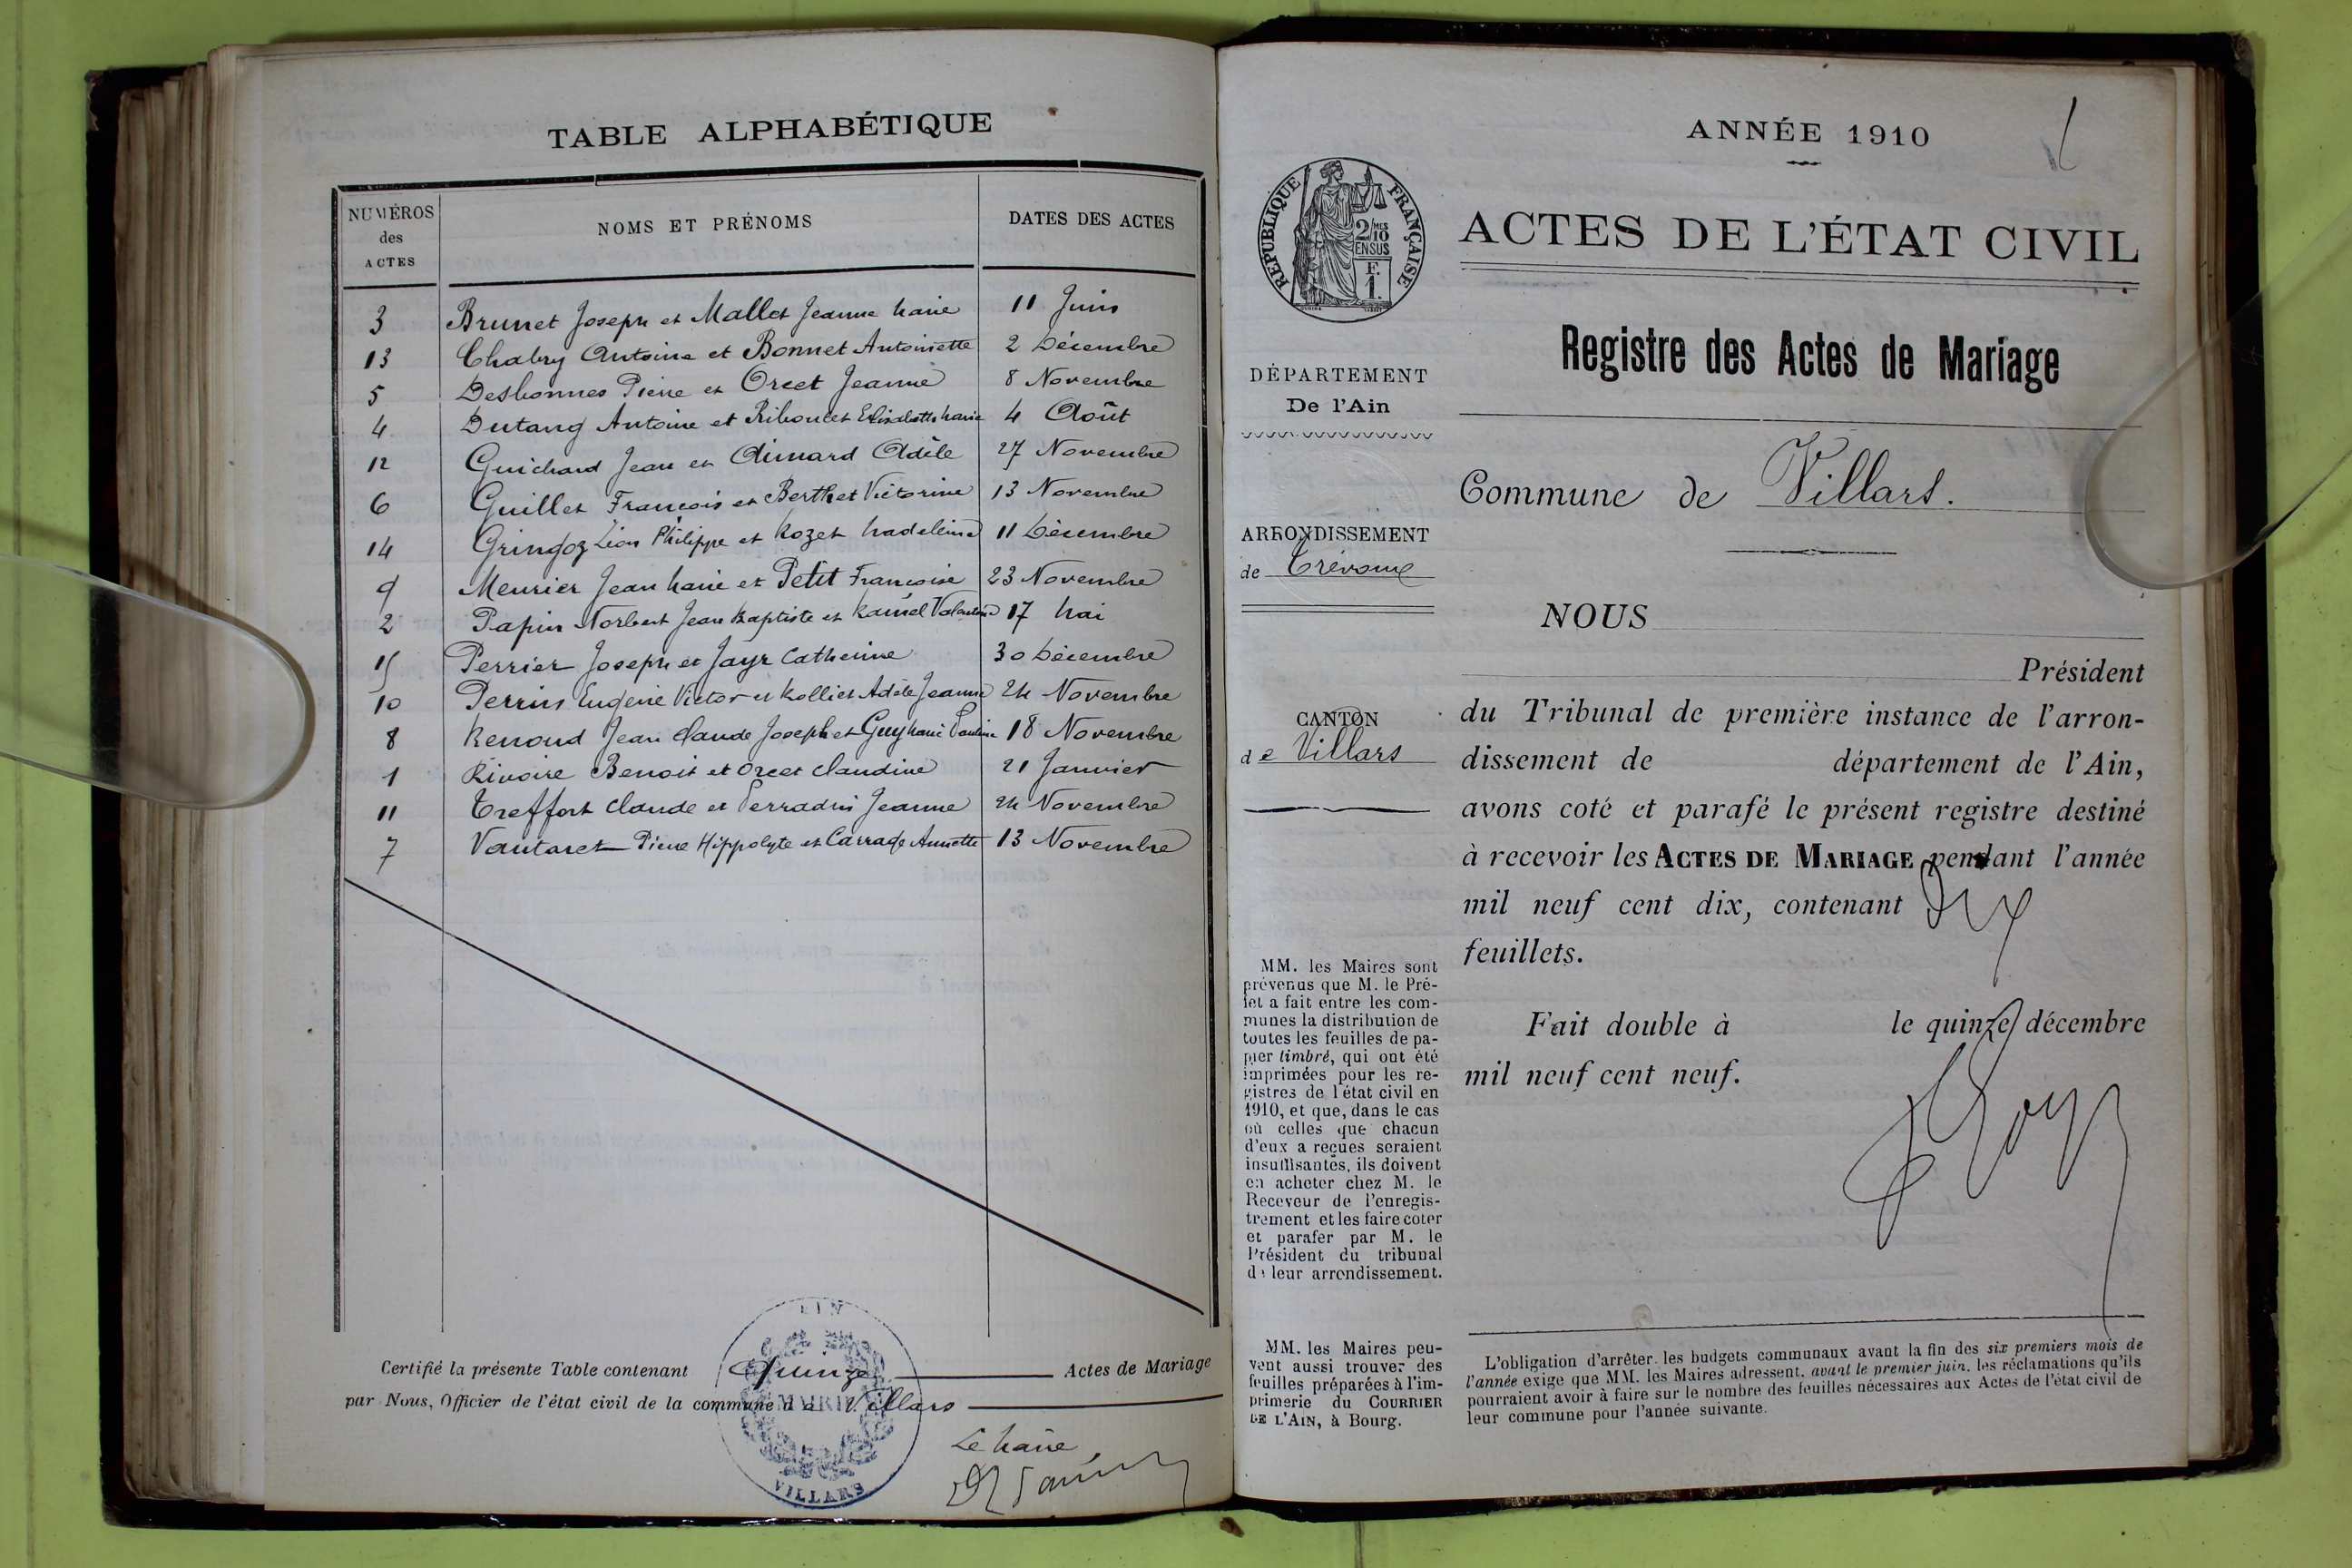 TABLE ALPHABÉTIQUE
NUMÉROS des ACTES
NOMS ET PRÉNOMS
DATES DES ACTES
3 Brunet Joseph et Mallet Jeanne Marie 11 Juin
13 Chabry Antoine et Bonnet Antoinette 2 Décembre
5 Desbonnes Pierre et Orcet Jeanne 8 Novembre
4 Dutang Antoine et Riboulet Elisabeth Marie 4 Août
12 Guichard Jean et Aimard Adèle 27 Novembre
6 Guillet François et Berthet Victorine 13 Novembre
14 Gringoz Léon Philippe et Rozet Madeleine 11 Décembre
9 Meurier Jean Marie et Petit Françoise 23 Novembre
2 Papin Norbert Jean Baptiste et Valentine 17 Mai
15 Perrier Joseph et Jayr Catherine 30 Décembre
10 Perrin Eugène Victor et Rollier Adèle Jeanne 24 Novembre
8 Renoud Jean Claude Joseph et Guy Marie Pauline 18 Novembre
1 Rivoire Benoit et Orcet Claudine 21 Janvier
11 Treffort Claude et Perradin Jeanne 24 Novembre
7 Vautaret Pierre Hippolyte et Carrage Annette 13 Novembre
Certifié la présente Table contenant Quinze Actes de Mariage
par Nous, Officier de l'état civil de la commune de Villars
Le Maire
AIN
MAIRIE
VILLARS
ANNÉE 1910
RÉPUBLIQUE FRANÇAISE
2/10 MES
EN SUS
F.
1.
ACTES DE L'ÉTAT CIVIL
Registre des Actes de Mariage
DÉPARTEMENT
De l'Ain
Commune de Villars.
ARRONDISSEMENT
de Trévoux
CANTON
de Villars
NOUS
Président
du Tribunal de première instance de l'arron-
dissement de département de l'Ain,
avons coté et parafé le présent registre destiné
à recevoir les ACTES DE MARIAGE pendant l'année
mil neuf cent dix, contenant Dix
feuillets.
Fait double à le quinze décembre
mil neuf cent neuf.
MM. les Maires sont
prévenus que M. le Pré-
fet a fait entre les com-
munes la distribution de
toutes les feuilles de pa-
pier timbré, qui ont été
imprimées pour les re-
gistres de l'état civil en
1910, et que, dans le cas
où celles que chacun
d'eux a reçues seraient
insuffisantes, ils doivent
en acheter chez M. le
Receveur de l'enregis-
trement et les faire coter
et parafer par M. le
Président du tribunal
de leur arrondissement.
MM. les Maires peu-
vent aussi trouver des
feuilles préparées à l'im-
primerie du COURRIER
DE L'AIN, à Bourg.
L'obligation d'arrêter les budgets communaux avant la fin des six premiers mois de
l'année exige que MM. les Maires adressent, avant le premier juin, les réclamations qu'ils
pourraient avoir à faire sur le nombre des feuilles nécessaires aux Actes de l'état civil de
leur commune pour l'année suivante.